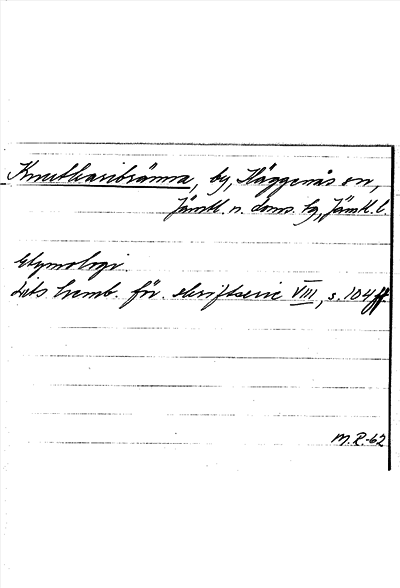 Knutkaribränna, by, Häggenås sn,
Jämtl. n. doms. tg, Jämtl. l.
Etymologi.
Lits hemb. för. skriftserie VIII, s. 104 ff.
M.R-62